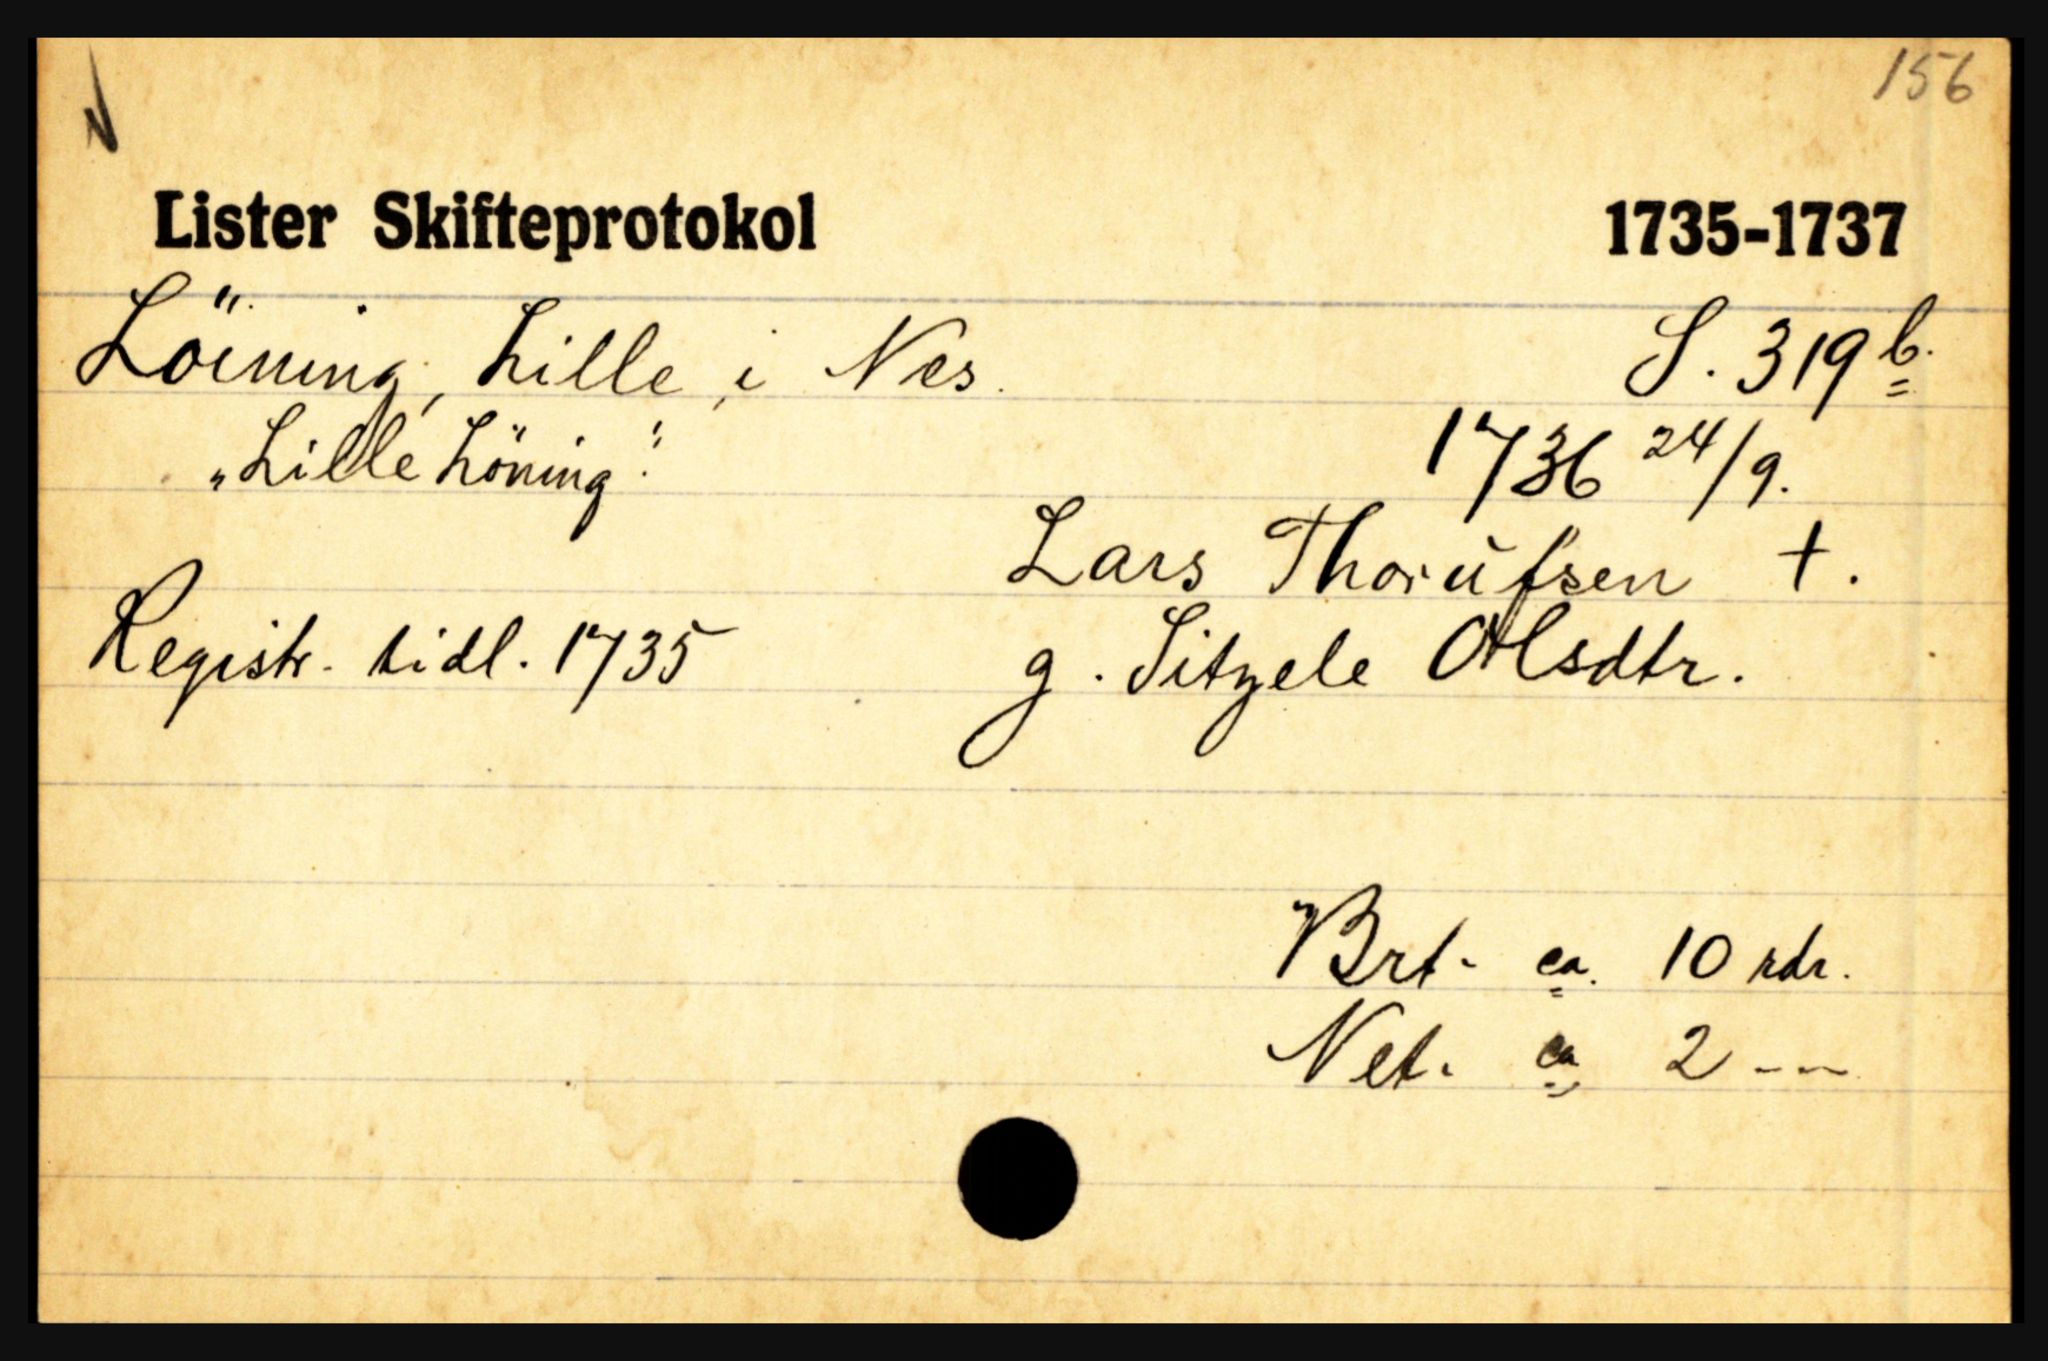 156
Lister Skifteprotokol 1735-1737
Löining, Lille, i Nes. S. 319 b.
„Lille Löning". 1736 24/9.
Lars Thorüfsen +.
Registr. tidl. 1735 g. Sitzele Olsdtr.
Brt. ca. 10 rdr.
Net. ca 2 --